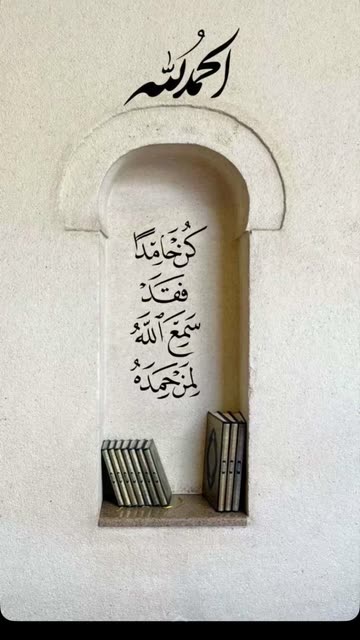 الحمدُ لله
كُنْ حَامِدًا
فَقَدْ
سَمِعَ ٱللَّهُ
لِمَنْ حَمِدَهُ